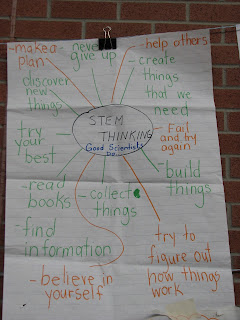 -make a
plan
never
give up
-help others
-create
things
that we
need
discover
new
things
STEM
THINKING
Good Scientists
Do...
-Fail
and try
again
try
your
best
build
things
-read
books
-collect
things
find
information
try to
figure out
how things
work
-believe in
yourself